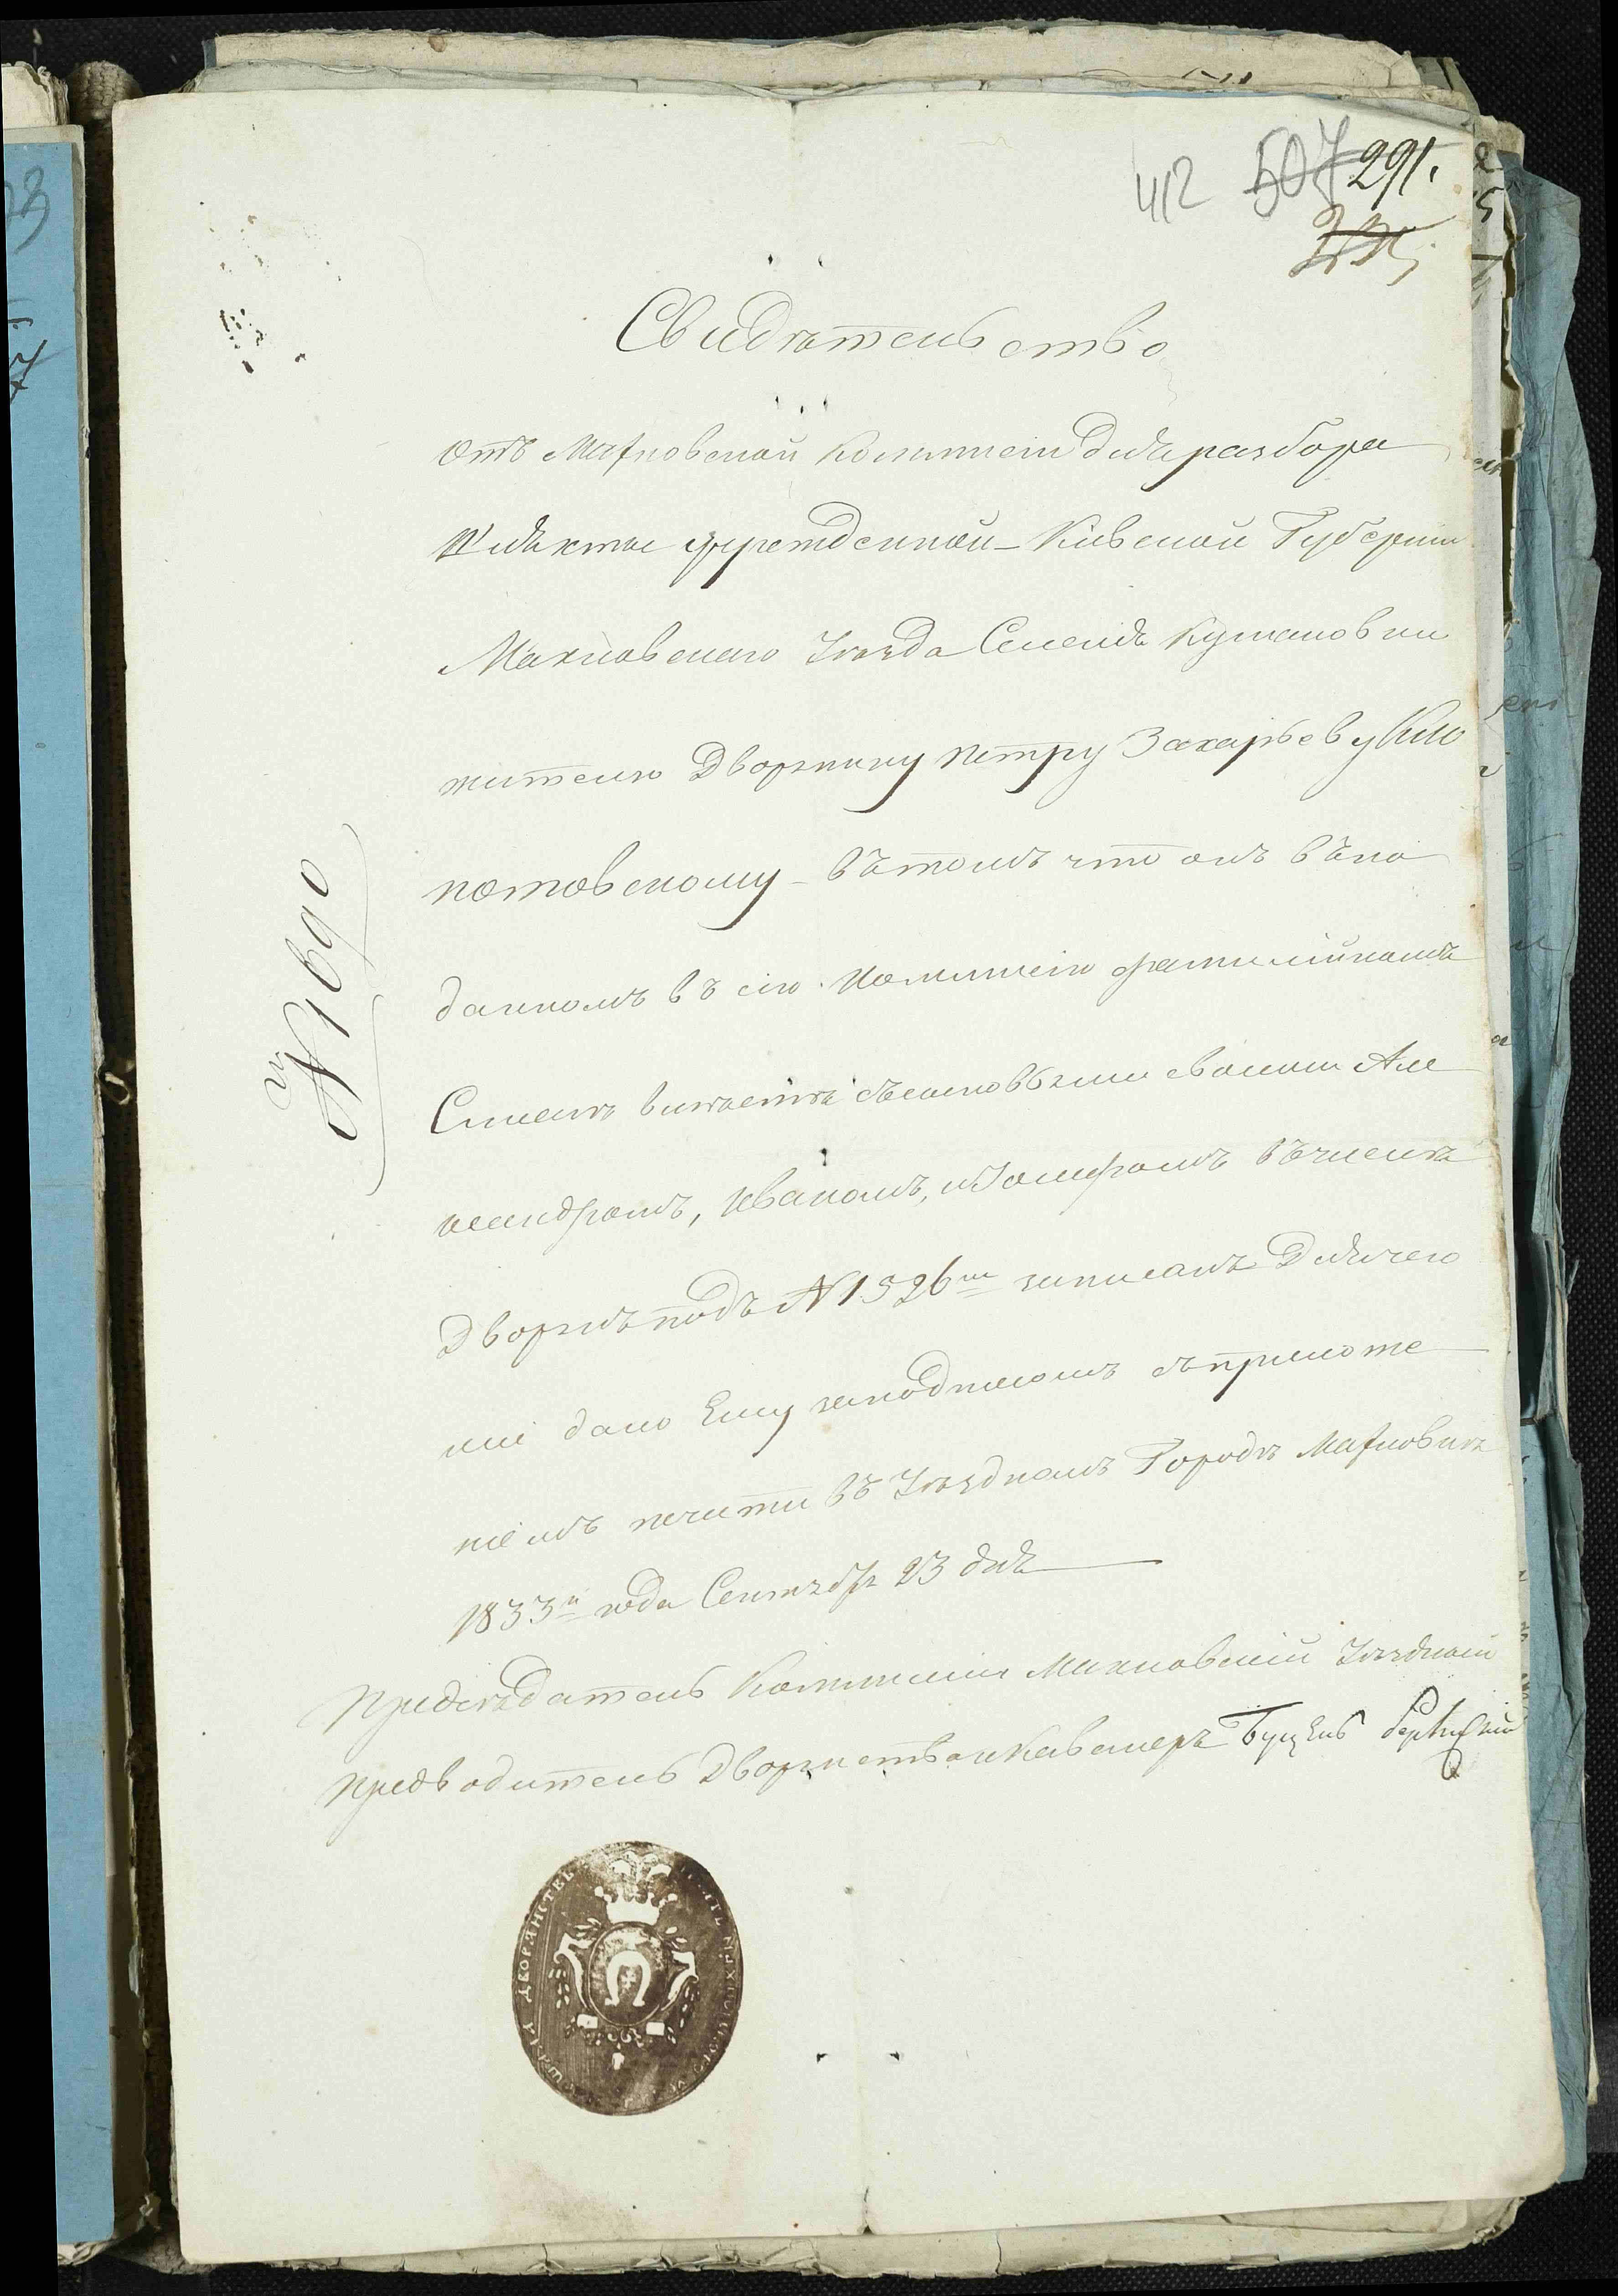 412 507 291.
Свидѣтельство
отъ Махновской Коммисіи для разбора
Шляхты учрежденной – Кіевской Губерніи
Махновского Уѣзда Селенія Кумановки
жителю Дворянину Петру Захарьеву Кло
потовскому – въ томъ что онъ въ по
данномъ въ сію Коммисію фамилійномъ
Спискѣ вмѣстѣ съ сыновьями своими Але
ксандромъ, Иваномъ, и Іосифомъ въ числѣ
Дворянъ подъ N 1526мъ записанъ Для чего
ему дано Ему за подписомъ съ приложе
ніемъ печати въ Уѣздномъ Городѣ Махновкѣ
1833го года Сентября 23 дня
N 1690
Предсѣдатель Коммисіи Махновскій Уѣздный
Предводитель Дворянства и Кавалеръ
ДВОРЯНСТВА